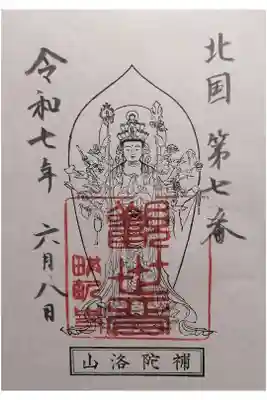 北国 第七番
令和七年 六月八日
觀世音
補陀洛山